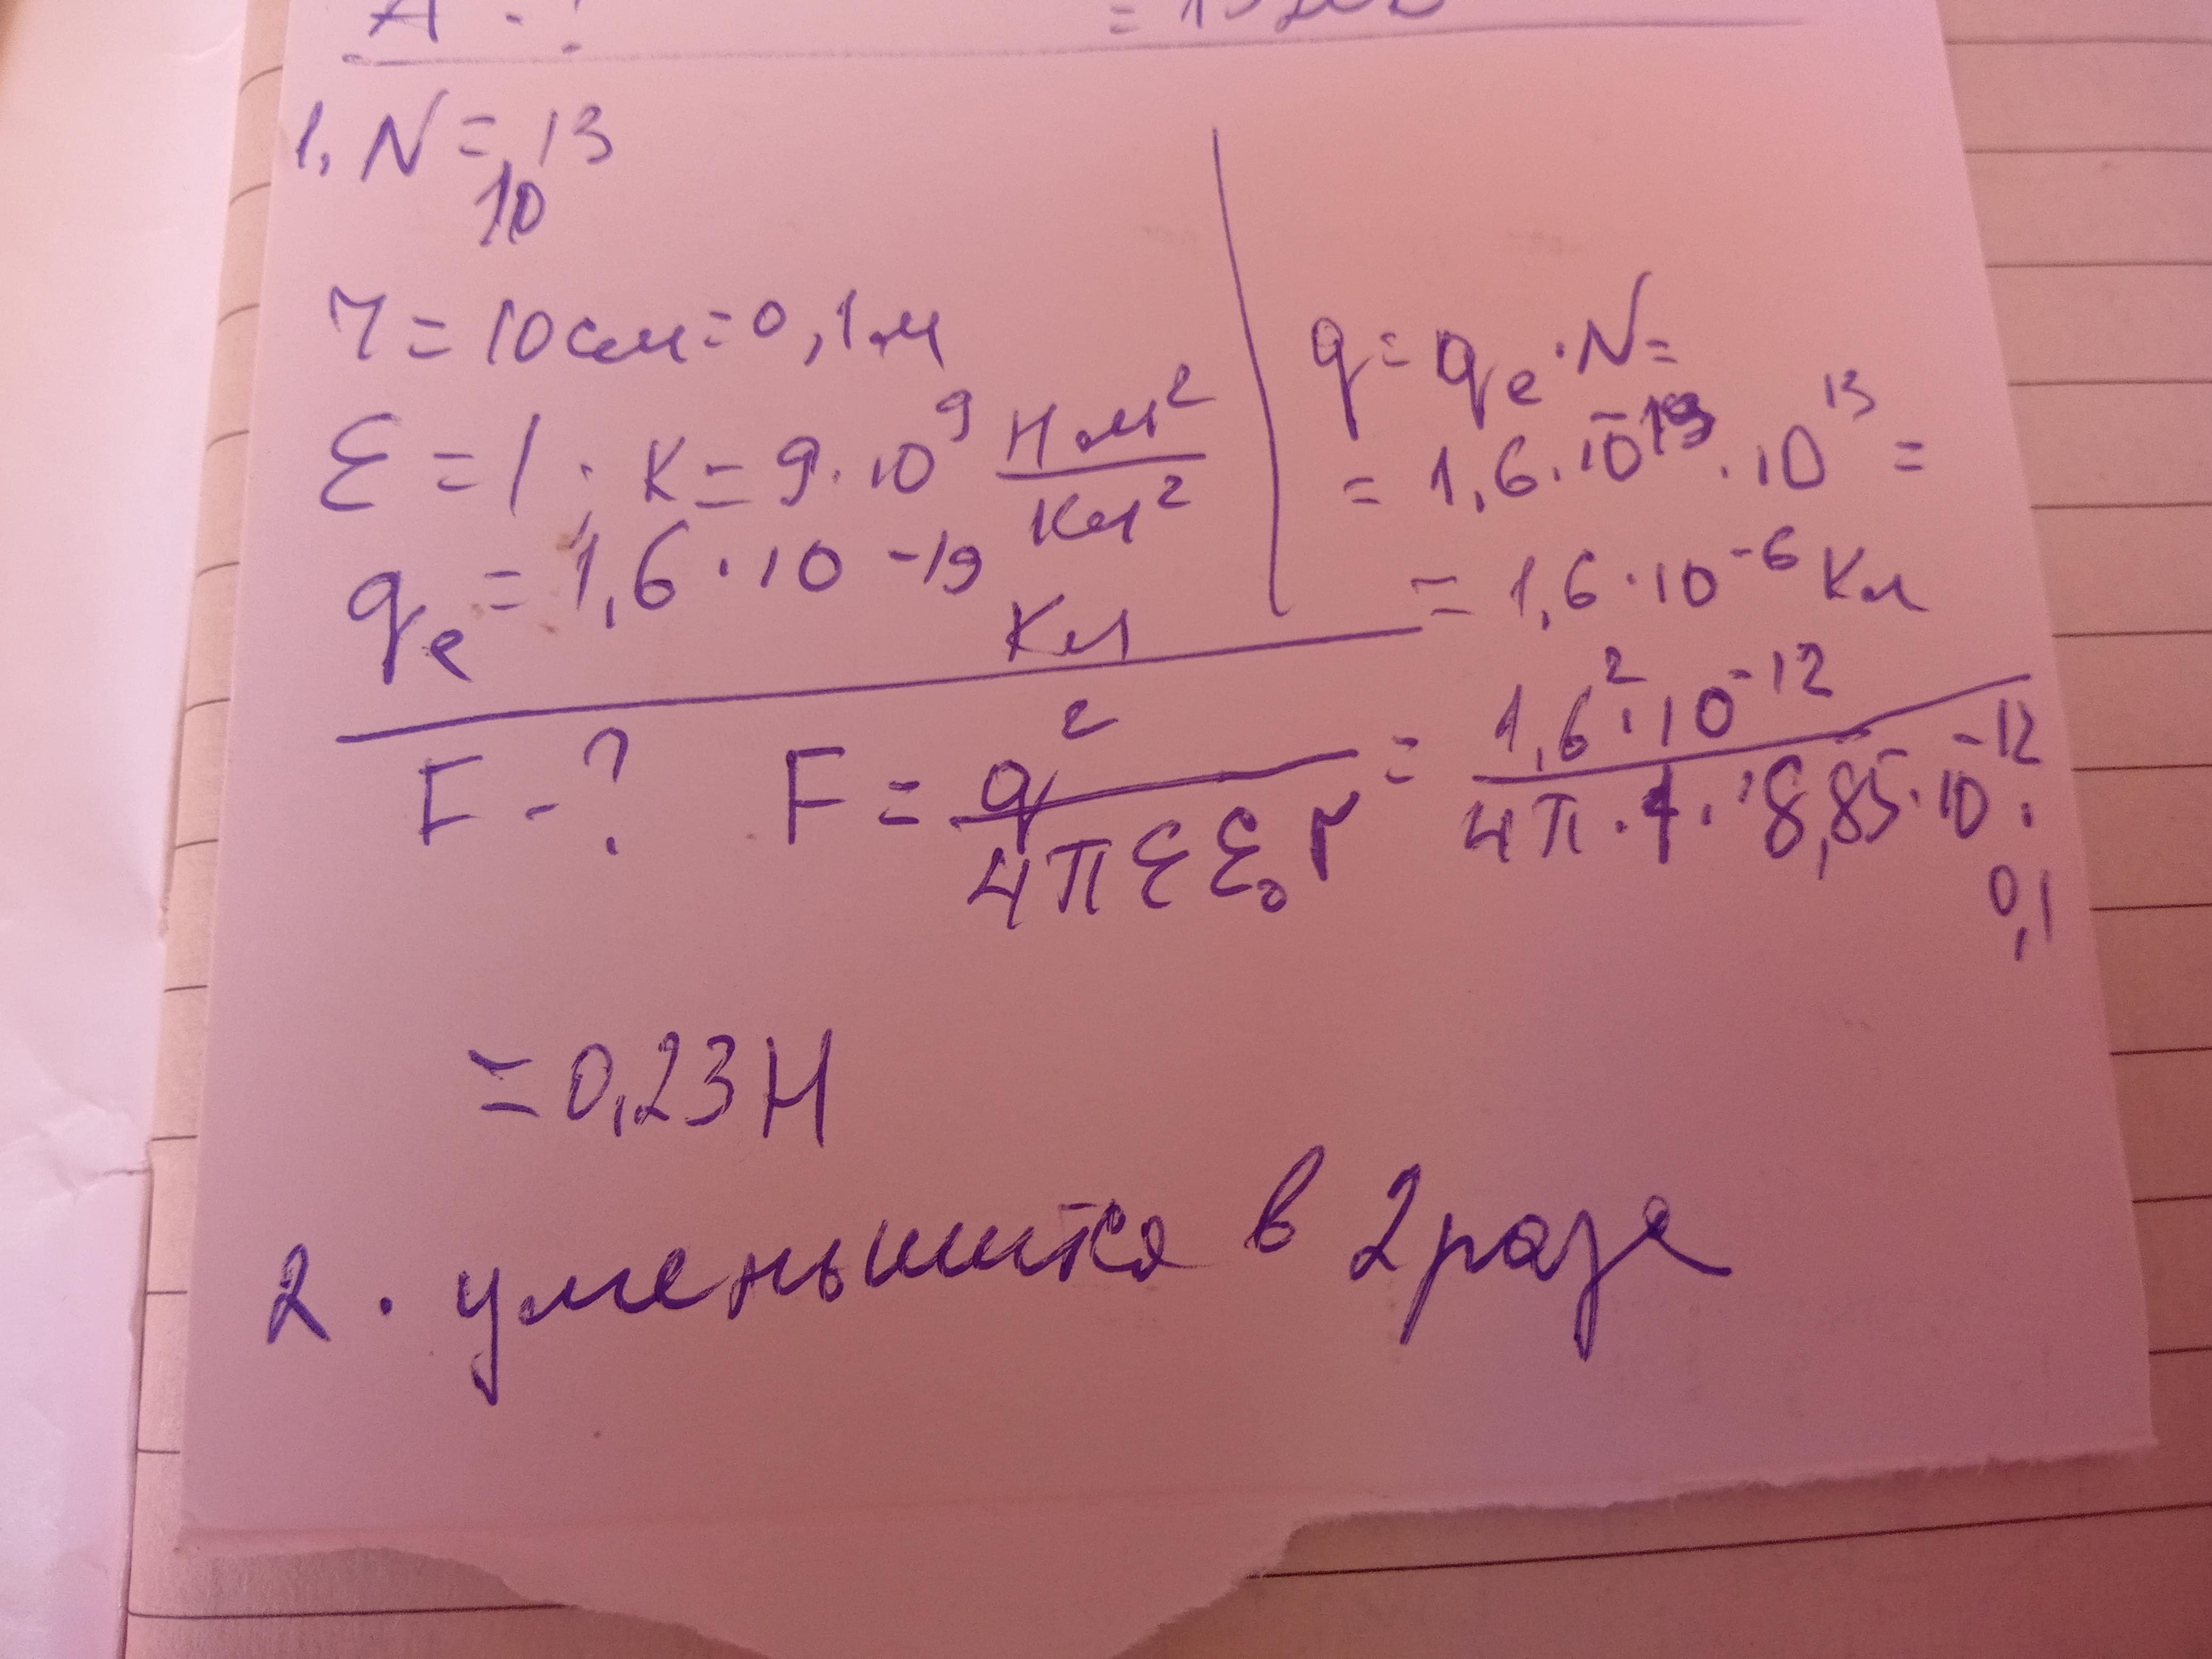 1. N = 10¹³
r = 10 см = 0,1 м
ε = 1 ; к = 9 · 10⁹ Н м² / Кл²
qₑ = 1,6 · 10⁻¹⁹ Кл
q = qₑ · N =
= 1,6 · 10⁻¹⁹ · 10¹³ =
= 1,6 · 10⁻⁶ Кл
F - ? F = q² / 4π ε ε₀ r = 1,6² · 10⁻¹² / 4π · 1 · 8,85 · 10⁻¹² · 0,1
= 0,23 Н
2. уменьшится в 2 раза